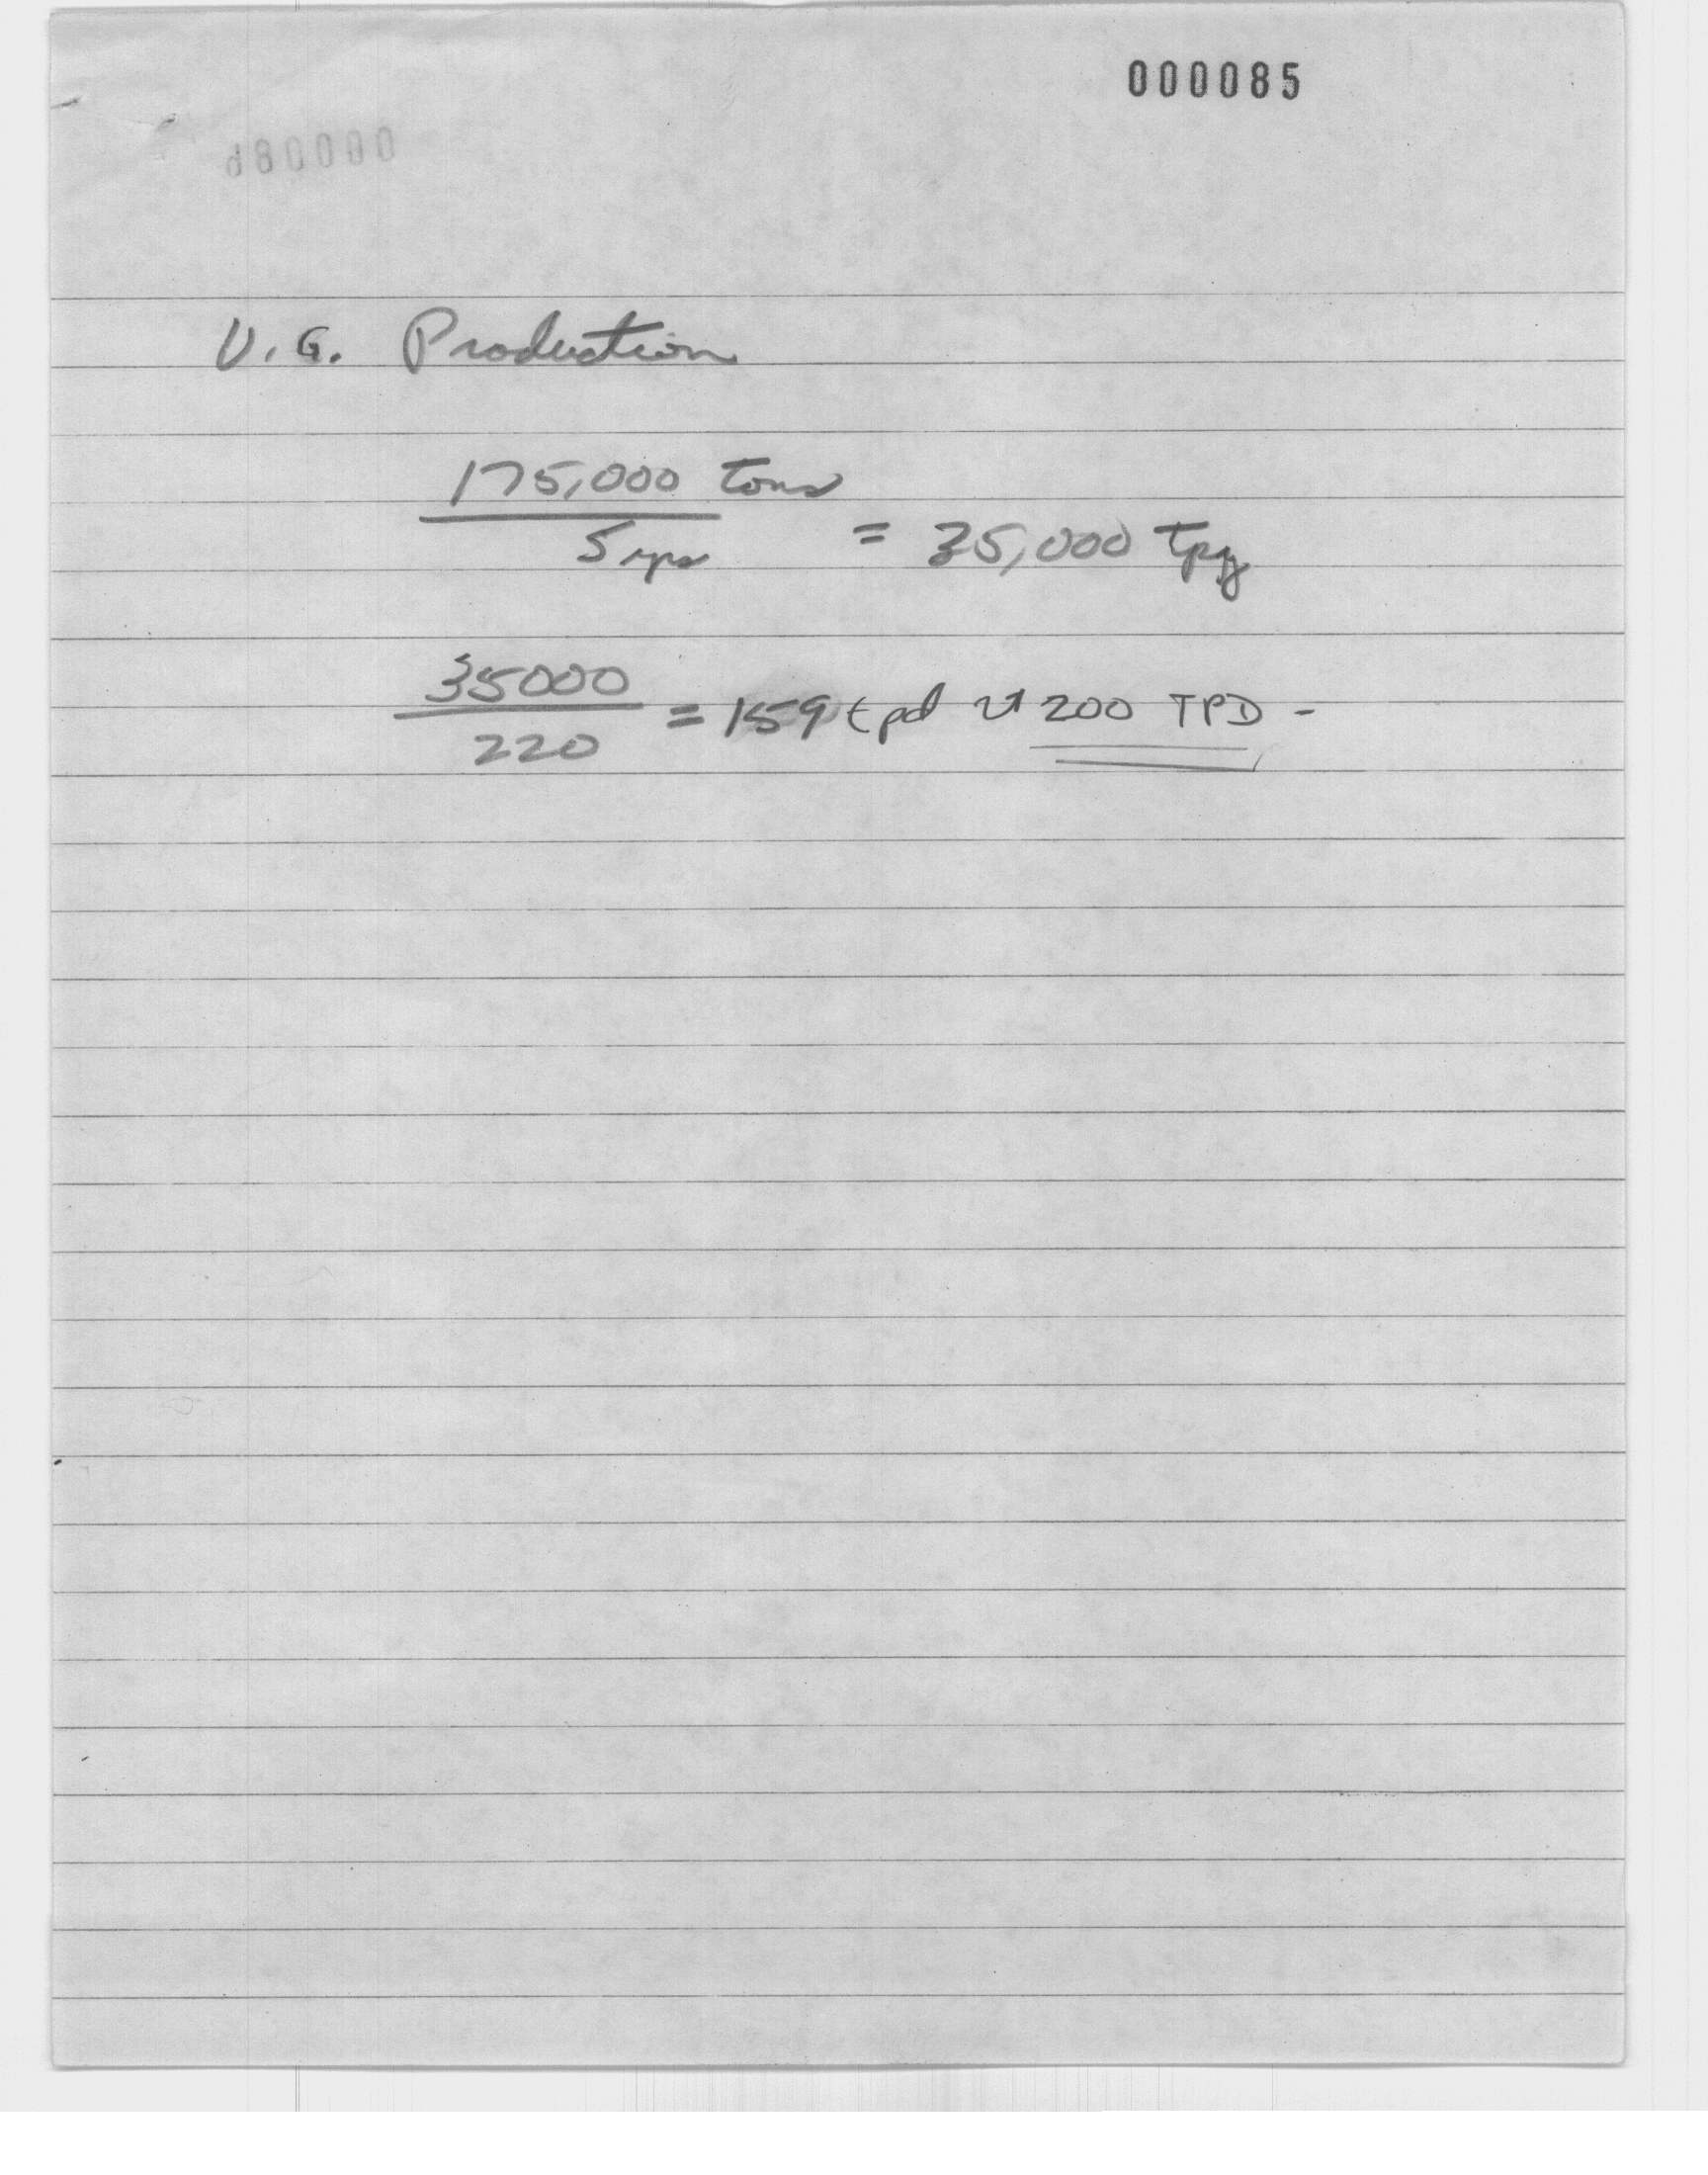 000085
U.G. Production
175,000 tons
5 yrs
= 35,000 tpy
35000
220
= 159 tpd ≈ 200 TPD -